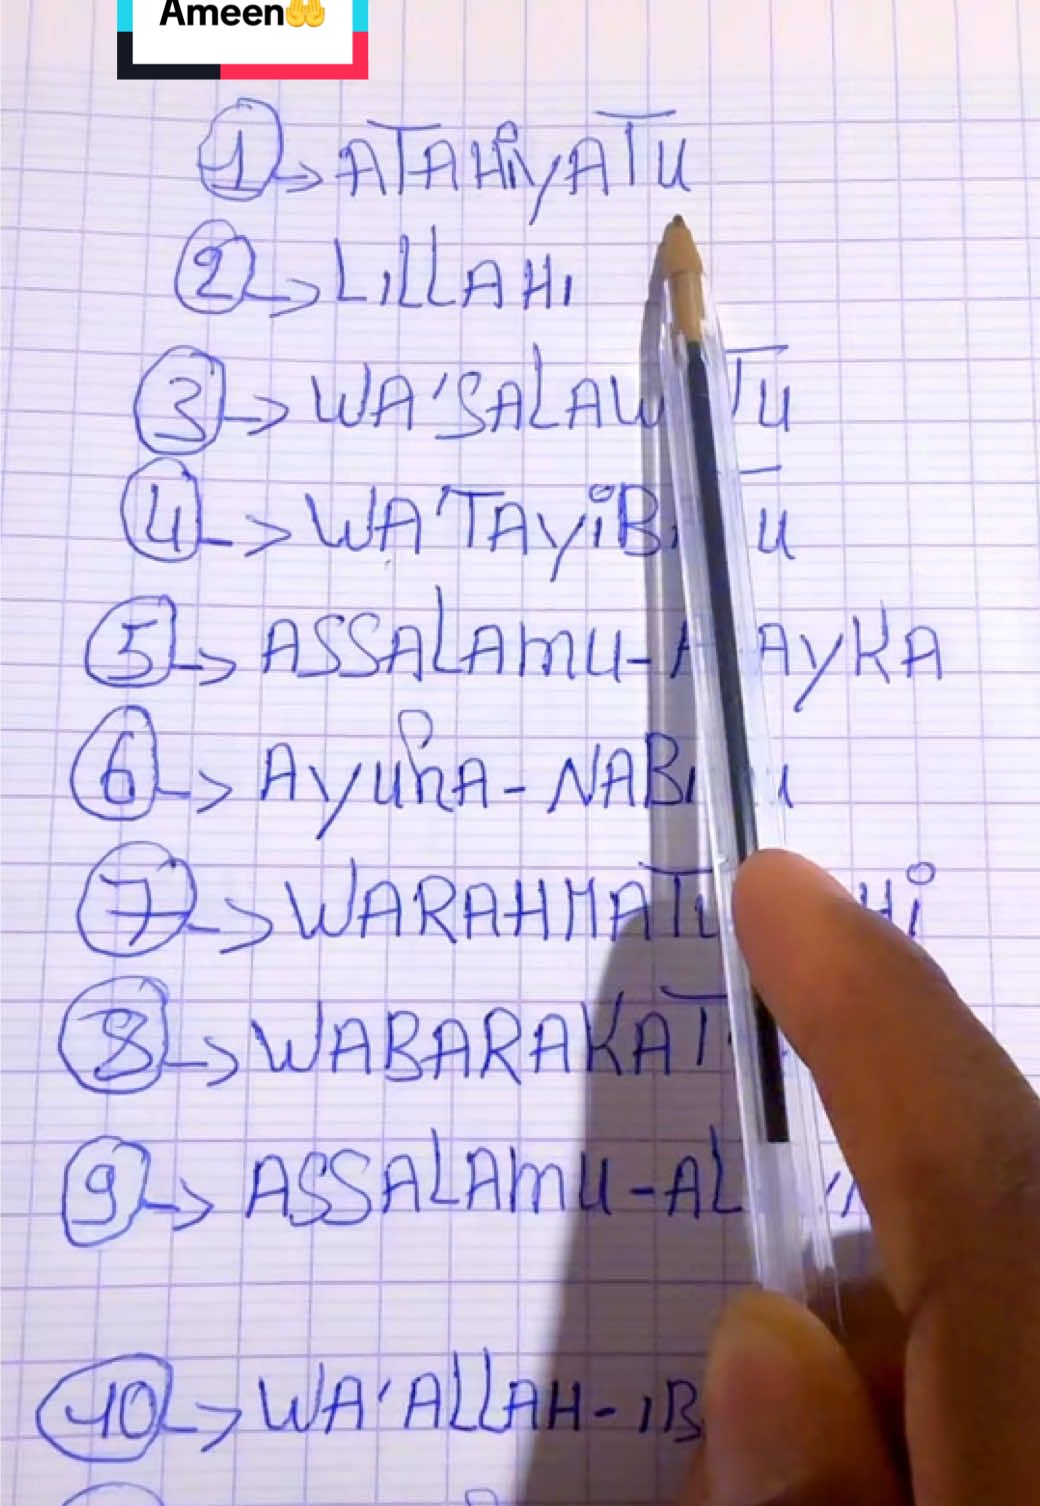 Ameen🤲
1 → ATAHiyATU
2 → LiLLAHI
3 → WA'SALAW TU
4 → WA'TAYiB U
5 → ASSALAMU-A AYKA
6 → AyuhA-NABI U
7 → WARAHMATU Hi
8 → WABARAKAT
9 → ASSALAMU-AL
10 → WA'ALLAH-IB